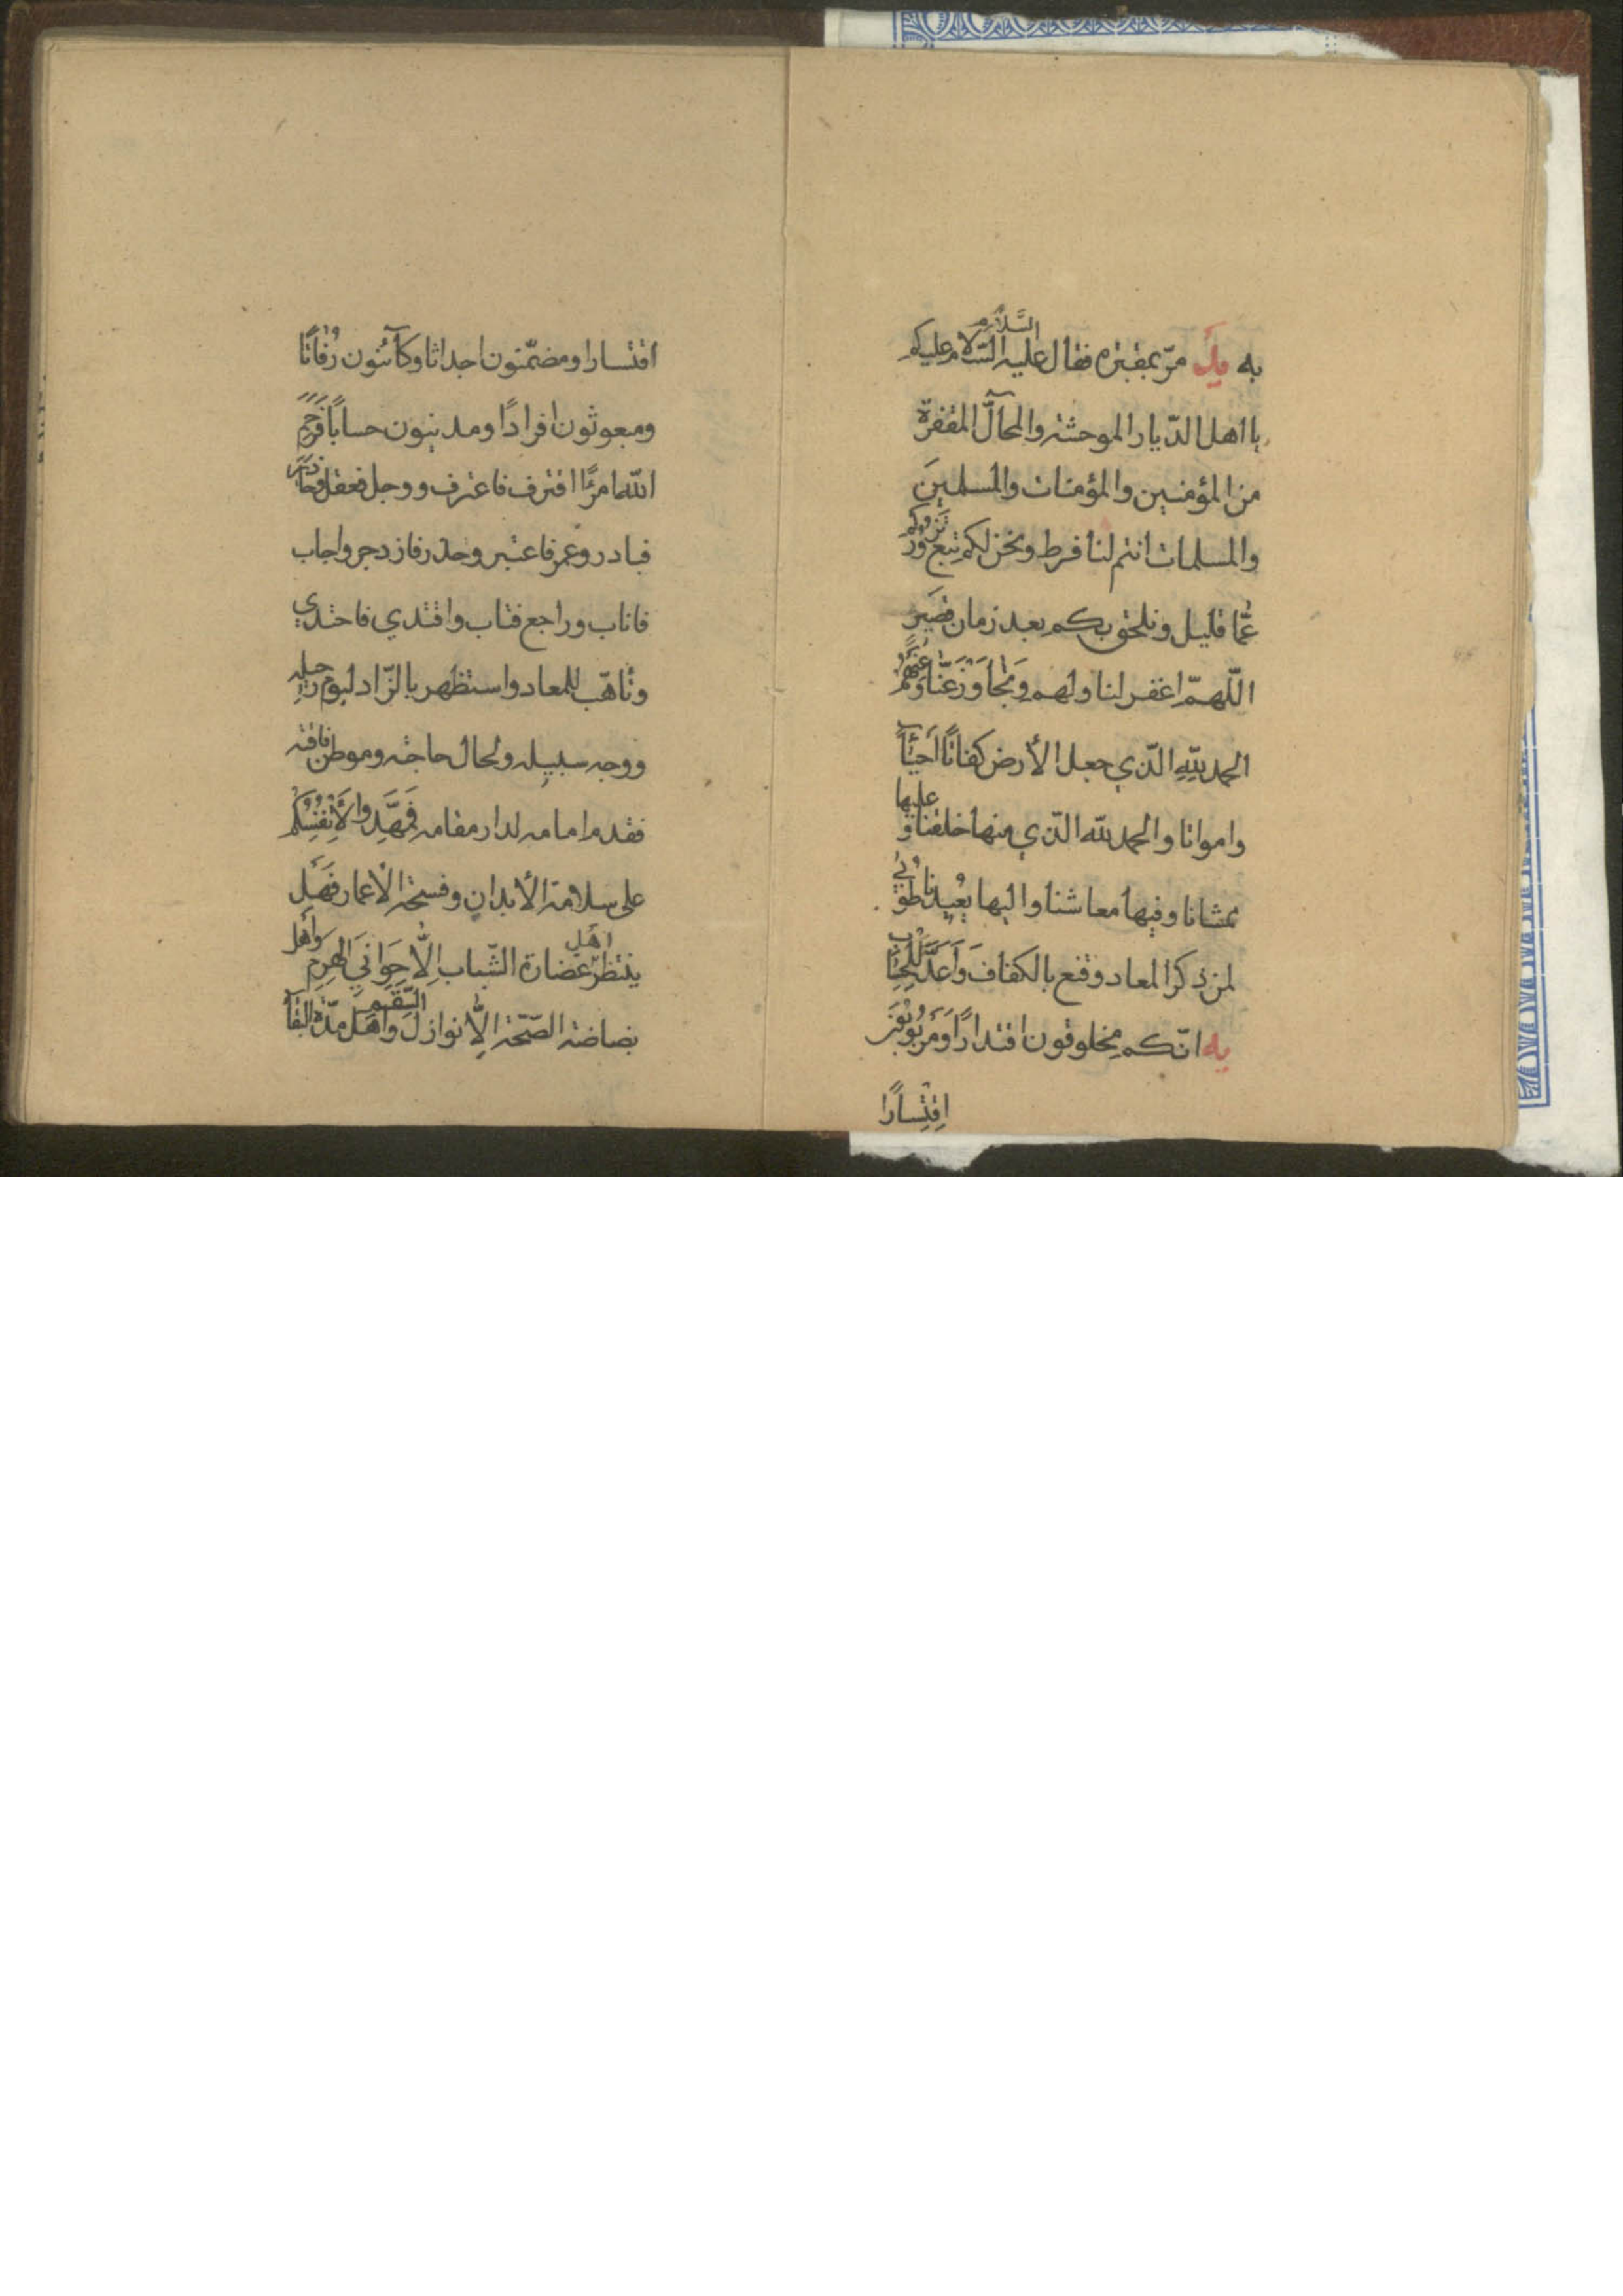 به يد مرّ بمقبرة فقال عليه السّلام السّلام عليكم
يا اهل الدّيار الموحشة والمحآلّ المقفرة
من المؤمنين والمؤمنات والمسلمينَ
والمسلمات انتم لنا فرط ونحن لكم تبع نزوركم
عمّا قليل ونلحق بكم بعد زمان قصير
اللّهمّ اغفر لنا ولهم وَتَجاوَزْ عَنّا وَعَنْهُمْ
الحمد للّهِ الّذي جعل الأرض كفاتًا اَحيآءً
وامواتا والحمد للّه الّذي منها خلقنا وعليها
ممشانا وفيها معاشنا واليها يُعيدنا طُوبى
لمن ذكر المعاد وقنع بالكفافَ وَاَعَدَّ لِلْحِسٰابِ
يه انّكم مخلوقون اقتدارًا وَمَرْبُوبُونَ
اِقْتِسٰارًا
اقتسارا ومضمّنون اجداثا وكآئنون رُفاتًا
ومبعوثون افرادًا ومدينون حسابًا فَرَحِمَ
اللّه امرءًا اقترف فاعترف ووجل فعقل وحاذر
فبادر وعمر فاعتبر وحذر فازدجر واجاب
فاناب وراجع فتاب واقتدي فاحتذي
وتاهّب للمعاد واستظهر بالزّاد ليوم رحيله
ووجه سبيله ولحال حاجته وموطن فاقته
فقدم امامه لدار مقامه فَمَهِّدوا لِأَنْفُسِكُمْ
على سلامة الأبدان وفسحة الأعمار فَهَل
ينتظر اَهْل غضارة الشّباب اِلّا حَوَانِيَ الهَرِمِ وأهل
بضاضة الصّحّة اِلّا نوازل السَّقَمِ وَاَهْل مدّة البقآء